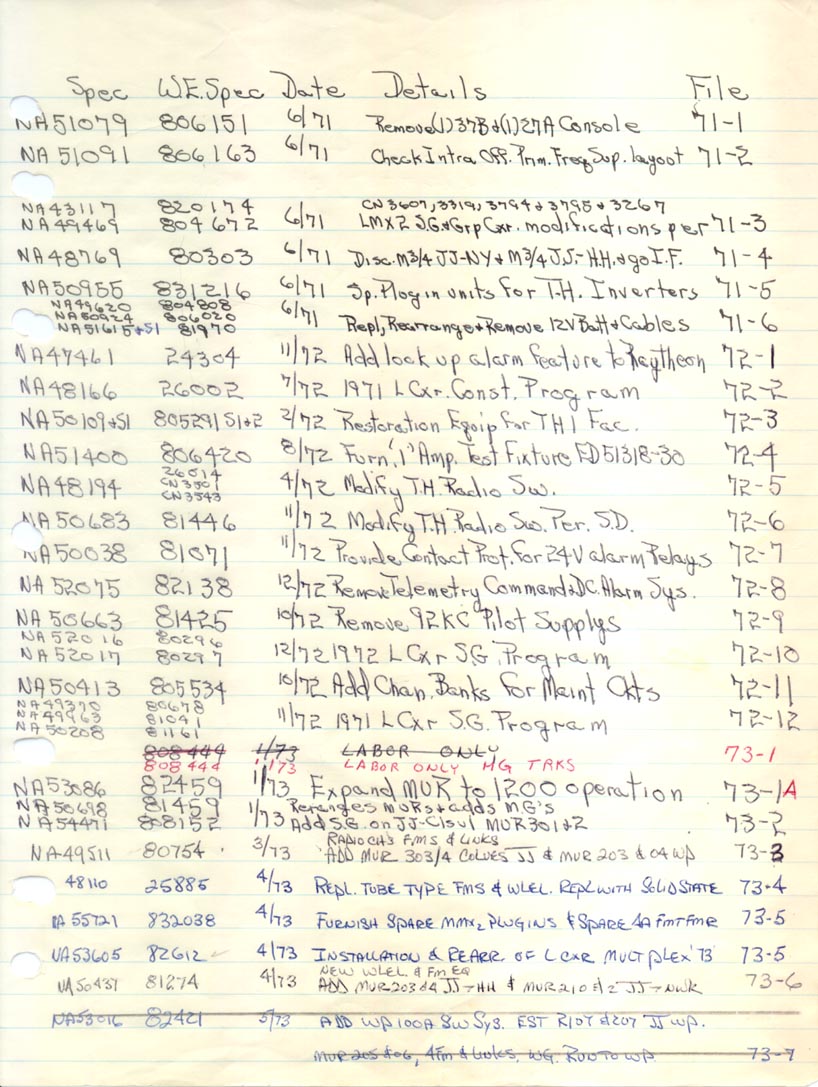 Spec W.E.Spec Date Details File
NA51079 806151 6/71 Remove(1)37B&(1)27A Console 71-1
NA 51091 806163 6/71 Check Intra Off. Prm. Freq Sup. layout 71-2
NA43117 820174 CN3607, 3319, 3794 & 3795 & 3267
NA49469 804672 6/71 LMX2 S.G&Grp Cxr. modifications per 71-3
NA48769 80303 6/71 Disc. M3/4 JJ-NY & M3/4 J.J.-H.H. & go I.F. 71-4
NA50955 831216 6/71 Sp. Plug in units for T.H. Inverters 71-5
NA49620 804808
NA50924 806020 6/71 Repl, Rearrange & Remove 12V Batt & Cables 71-6
NA51615&S1 81970
NA47461 24304 11/72 Add lock up alarm feature to Raytheon 72-1
NA48166 26002 7/72 1971 L Cxr. Const. Program 72-2
NA50109&S1 805291 S1&2 2/72 Restoration Equip for TH1 Fac. 72-3
NA51400 806420 8/72 Furn. '1' Amp. Test Fixture ED51318-30 72-4
26014
NA48194 CN3501 4/72 Modify T.H. Radio Sw. 72-5
CN3543
NA50683 81446 11/72 Modify T.H. Radio Sw. Per. S.D. 72-6
NA50038 81071 11/72 Provide Contact Prot. for 24V alarm Relays 72-7
NA 52075 82138 12/72 Remove Telemetry Command & DC. Alarm Sys. 72-8
NA50663 81425 10/72 Remove 92KC Pilot Supplys 72-9
NA52016 80296
NA52017 80297 12/72 1972 L Cxr S.G. Program 72-10
NA50413 805534 10/72 Add Chan. Banks for Maint Ckts 72-11
NA49370 80678
NA49963 81041 11/72 1971 L Cxr S.G. Program 72-12
NA50208 81161
808444 1/73 LABOR ONLY 73-1
808444 1/73 LABOR ONLY MG TRKS
NA53086 82459 1/73 Expand MUR to 1200 operation 73-1A
NA50698 81459 Reranges MURs & adds MG's
NA54471 808152 1/73 Add S.G. on JJ-Cisvl MUR301&2 73-2
RADIO CHS FMS & LINKS
NA49511 80754 3/73 ADD MUR 303/4 COLVES JJ & MUR 203 & 04 WP 73-3
48110 25885 4/73 REPL. TUBE TYPE FMS & WLEL. REPL WITH SOLID STATE 73-4
NA 55721 832038 4/73 FURNISH SPARE MMX2 PLUGINS & SPARE 4A FMT FMR 73-5
NA53605 82612 4/73 INSTALLATION & REARR OF L CXR MULTPLEX '73' 73-5
NEW WLEL & FM EQ
NA50437 81274 4/73 ADD MUR203&4 JJ→HH & MUR210 & 2 JJ→NWK 73-6
NA53016 82421 5/73 ADD WP 100A SW SYS. EST R107 & 207 JJ WP.
MUR 205 & 06, 4FM & LINKS, WG. RUN TO WP 73-7